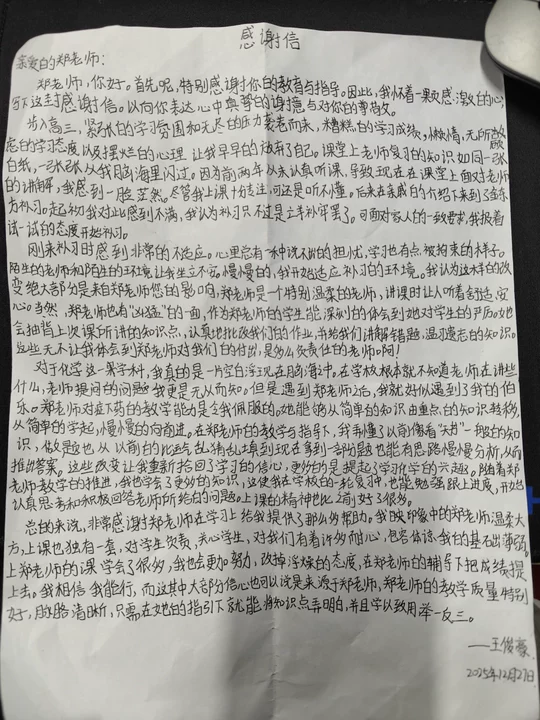 感谢信
亲爱的郑老师：
郑老师，你好。首先呢，特别感谢你的教育与指导。因此，我怀着一颗感激的心，
写下这封感谢信。以向你表达心中真挚的谢意与对你的尊敬。
步入高三，紧张的学习氛围和无尽的压力袭卷而来，糟糕的学习成绩，小懒惰，无所顾
忌的学习态度，以及摆烂的心理，让我早早的放弃了自己。课堂上老师复习的知识如同一张
白纸，一张张从我脑海里闪过。因为前两年从未认真听课，导致现在在课堂上面对老师
的讲解，我感到一脸茫然。尽管我上课十分专注，可还是听不懂。后来在亲戚的介绍下来到了金东
方补习。起初我对此感到不满，我认为补习只不过是亡羊补牢罢了。可面对家人的一致要求，我报着
试一试的态度开始补习。
刚来补习时感到非常的不适应。心里总有一种说不出的担忧，学习也有点被拘束的样子。
陌生的老师和陌生的环境让我坐立不安。慢慢的，我开始适应补习的环境。我认为这样的改
变绝大部分是来自郑老师您的影响，郑老师是一个特别温柔的老师，讲课时让人听着舒适，安
心。当然，郑老师也有“凶猛”的一面，作为郑老师的学生能深刻的体会到她对学生的严厉。她也
会抽背上次课所讲的知识点，认真地批改我们的作业，并给我们讲解错题，温习遗忘的知识。
这些无不让我体会到郑老师对我们的付出，是多么负责任的老师啊！
对于化学这一学科，我真的是一片空白浮现在脑海中。在学校根本就不知道老师在讲些
什么，老师提问的问题我更是无从而知。但是遇到郑老师之后，我就好似遇到了我的伯
乐。郑老师对症下药的教学能力是令我佩服的。她能够从简单的知识由重点的知识转移，
从简单的学起，慢慢的向前进。在郑老师的教学与指导下，我弄懂了以前像看“天书”一般的知
识，做题也从以前的比运气乱猜乱填到现在拿到一部分题也能有思路慢慢分析，从而
推出答案。这些改变让我重新拾回了学习的信心，更多的是提起了学化学的兴趣。随着郑
老师教学的推进，我也学会了更多的知识，这使我在学校的一轮复习中，也能勉强跟上进度，开始
认真思考和积极回答老师所给的问题。上课的精神也比之前好了很多。
总的来说，非常感谢郑老师在学习上给我提供了那么多帮助。我映印象中的郑老师温柔大
方，上课也独有一套，对学生负责，关心学生，对我们有着许多耐心，包容体谅我的基础薄弱。
上郑老师的课学会了很多，我也会更加努力，改掉浮燥的态度，在郑老师的辅导下把成绩提
上去。我相信我能行，而这其中大部分信心也可以说是来源于郑老师，郑老师的教学质量特别
好，脉络清晰，只需在她的指引下就能将知识点弄明白，并且学以致用举一反三。
——王俊豪
2025年12月27日